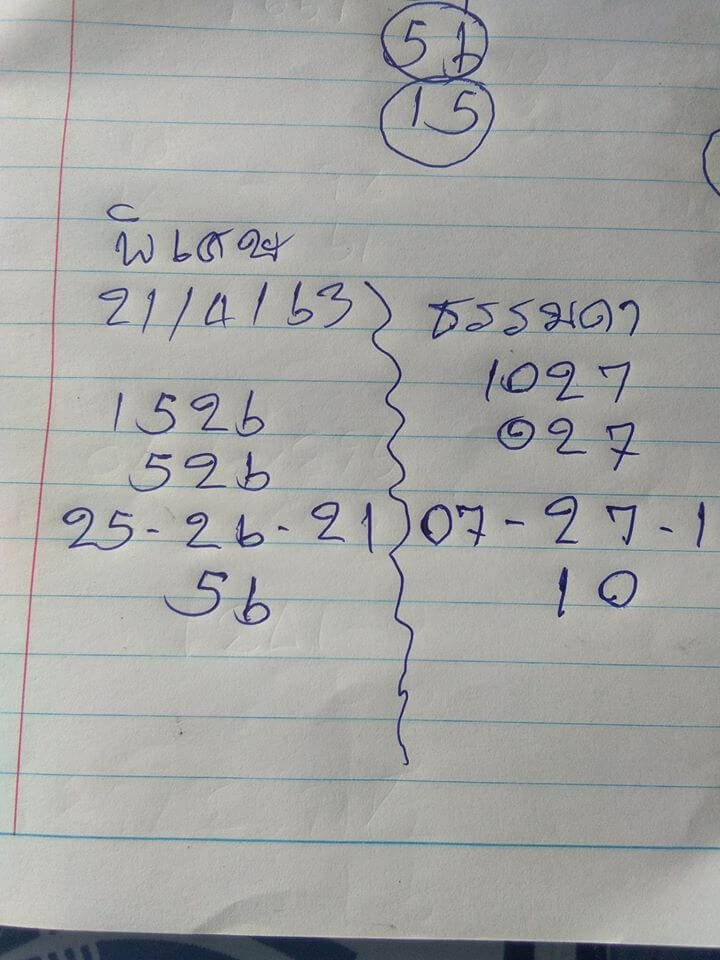 56
15
พิเศษ
21/4/63
1526
526
25-26-21
56
ธรรมดา
1027
027
07-27-1
10